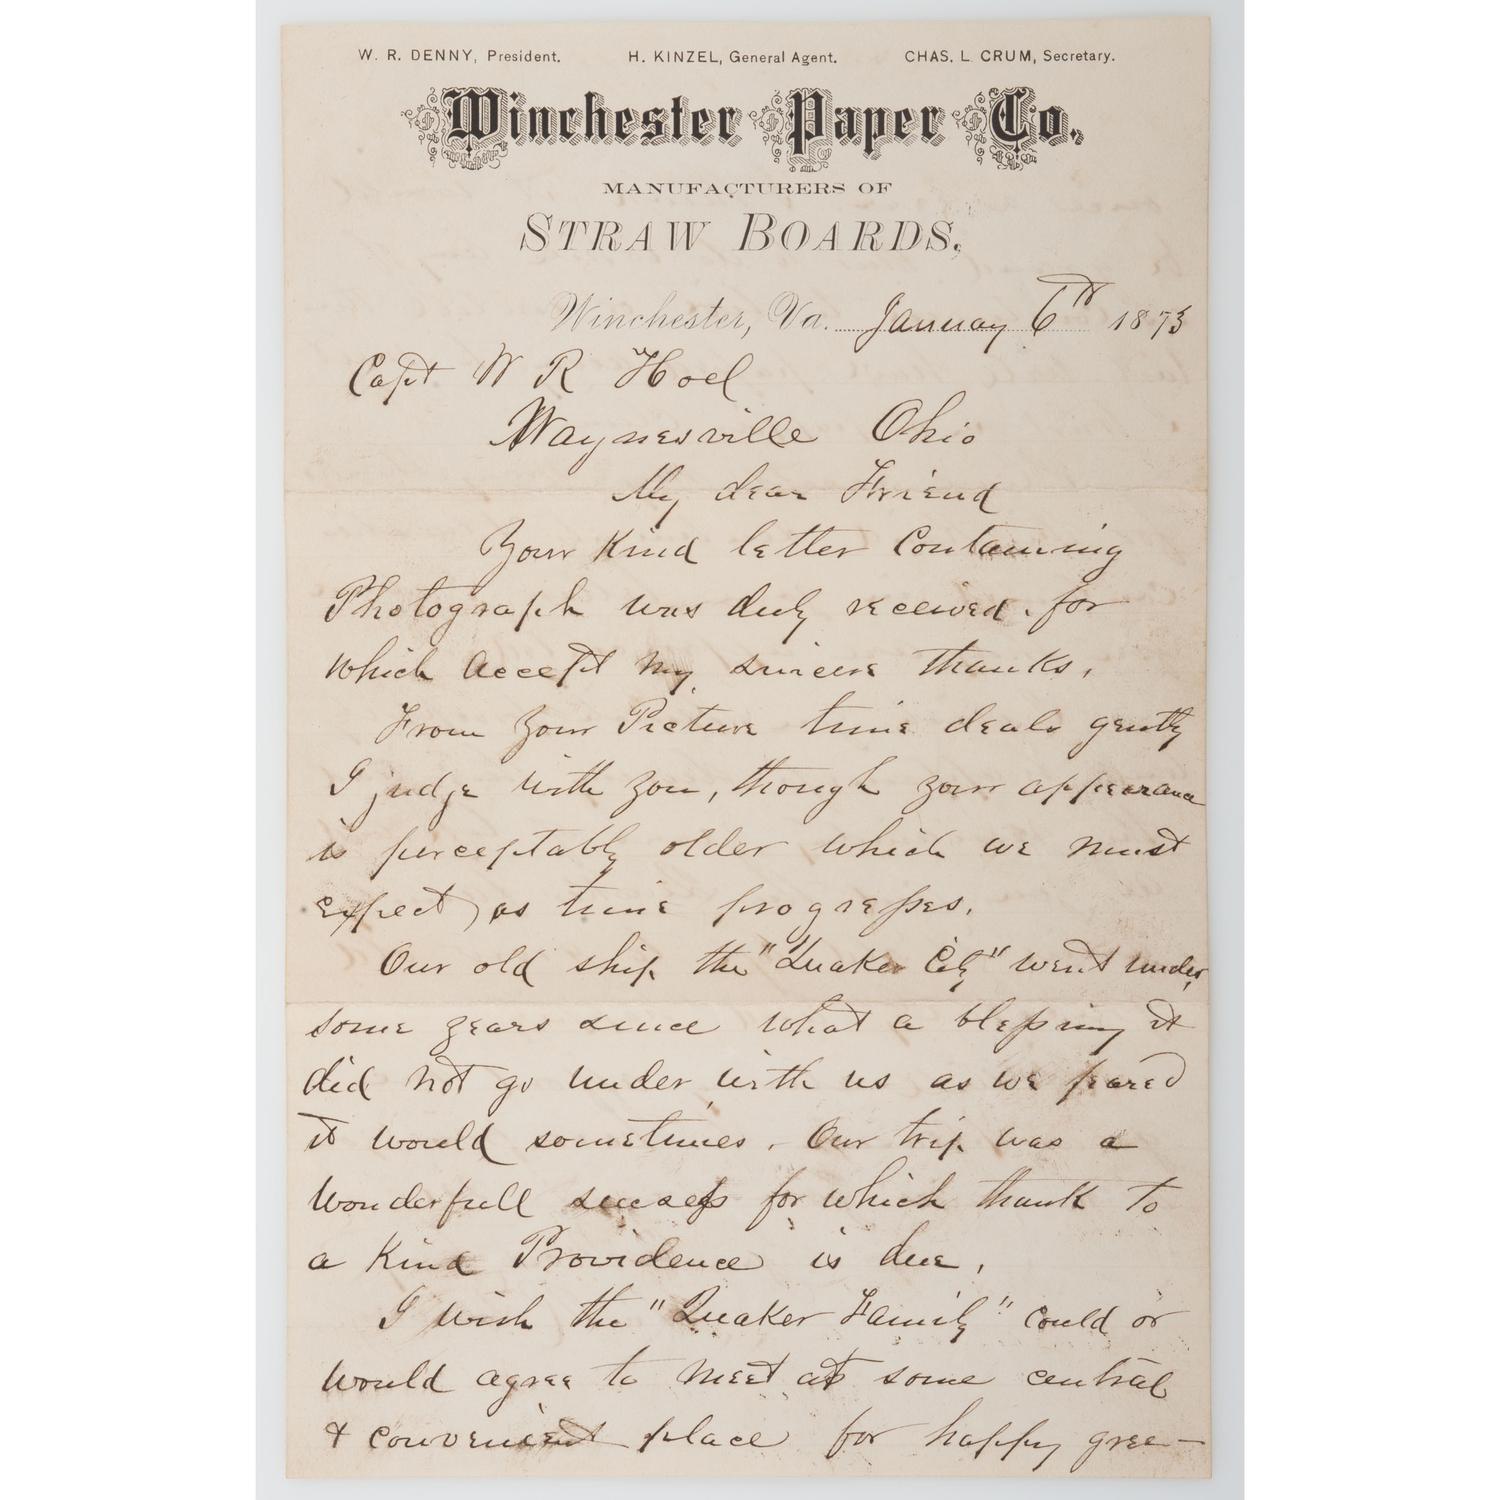 W. R. DENNY, President. H. KINZEL, General Agent. CHAS. L. CRUM, Secretary.
Winchester Paper Co.
MANUFACTURERS OF
STRAW BOARDS.
Winchester, Va. January 6th 1873
Capt W R Hoel
Waynesville Ohio
My dear Friend
Your Kind letter Containing
Photograph was duly received. for
which accept my sincere thanks.
From your Picture time deals gently
I judge with you, though your appearance
is perceptably older which we must
expect, as time progresses.
Our old ship the "Quaker City" went under
some years since what a blessing it
did not go under with us as we feared
it would sometimes. Our trip was a
wonderfull sucsess for which thank to
a Kind Providence is due.
I wish the "Quaker Family" could or
would agree to meet at some central
& convenient place for happy gree-